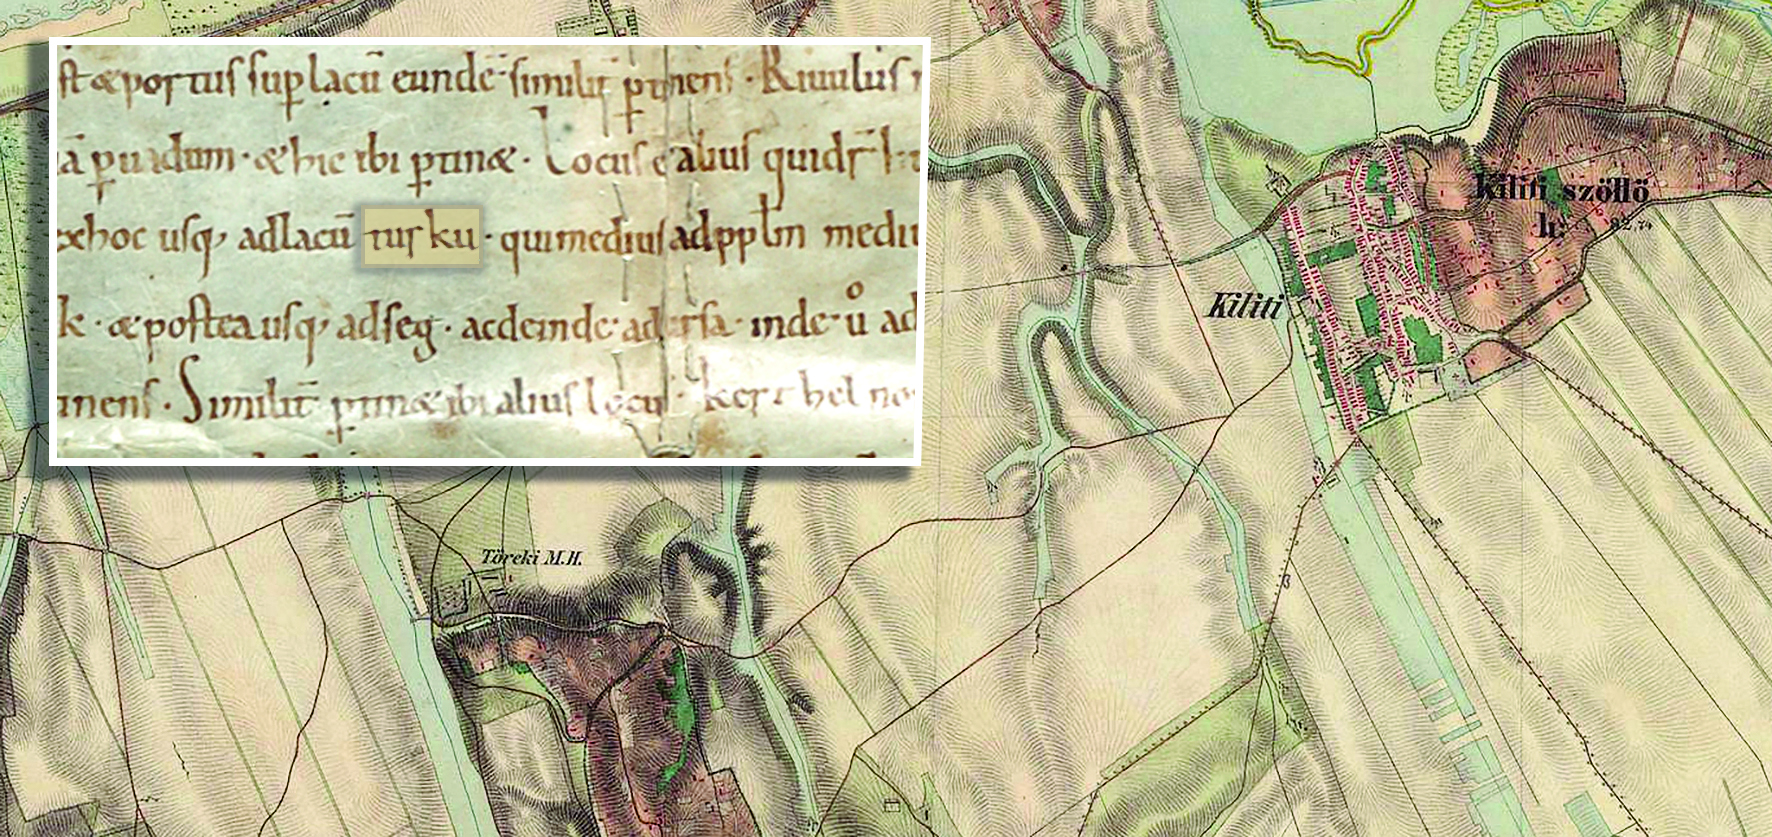 st & portus sup lacū eundē similit ptinens · Riuulus
ā p uadum · & hic ibi ptin& · Locus ē alius quidē
exhoc usq; adlacū turku · qui medius adpplm mediu
k · & postea usq; adseg · acdeinde ad ursa · inde ů ad
inens · Similit ptin& ibi alius locus · kert hel no
Kiliti szöllö
h:
Kiliti
Töreki M.H.